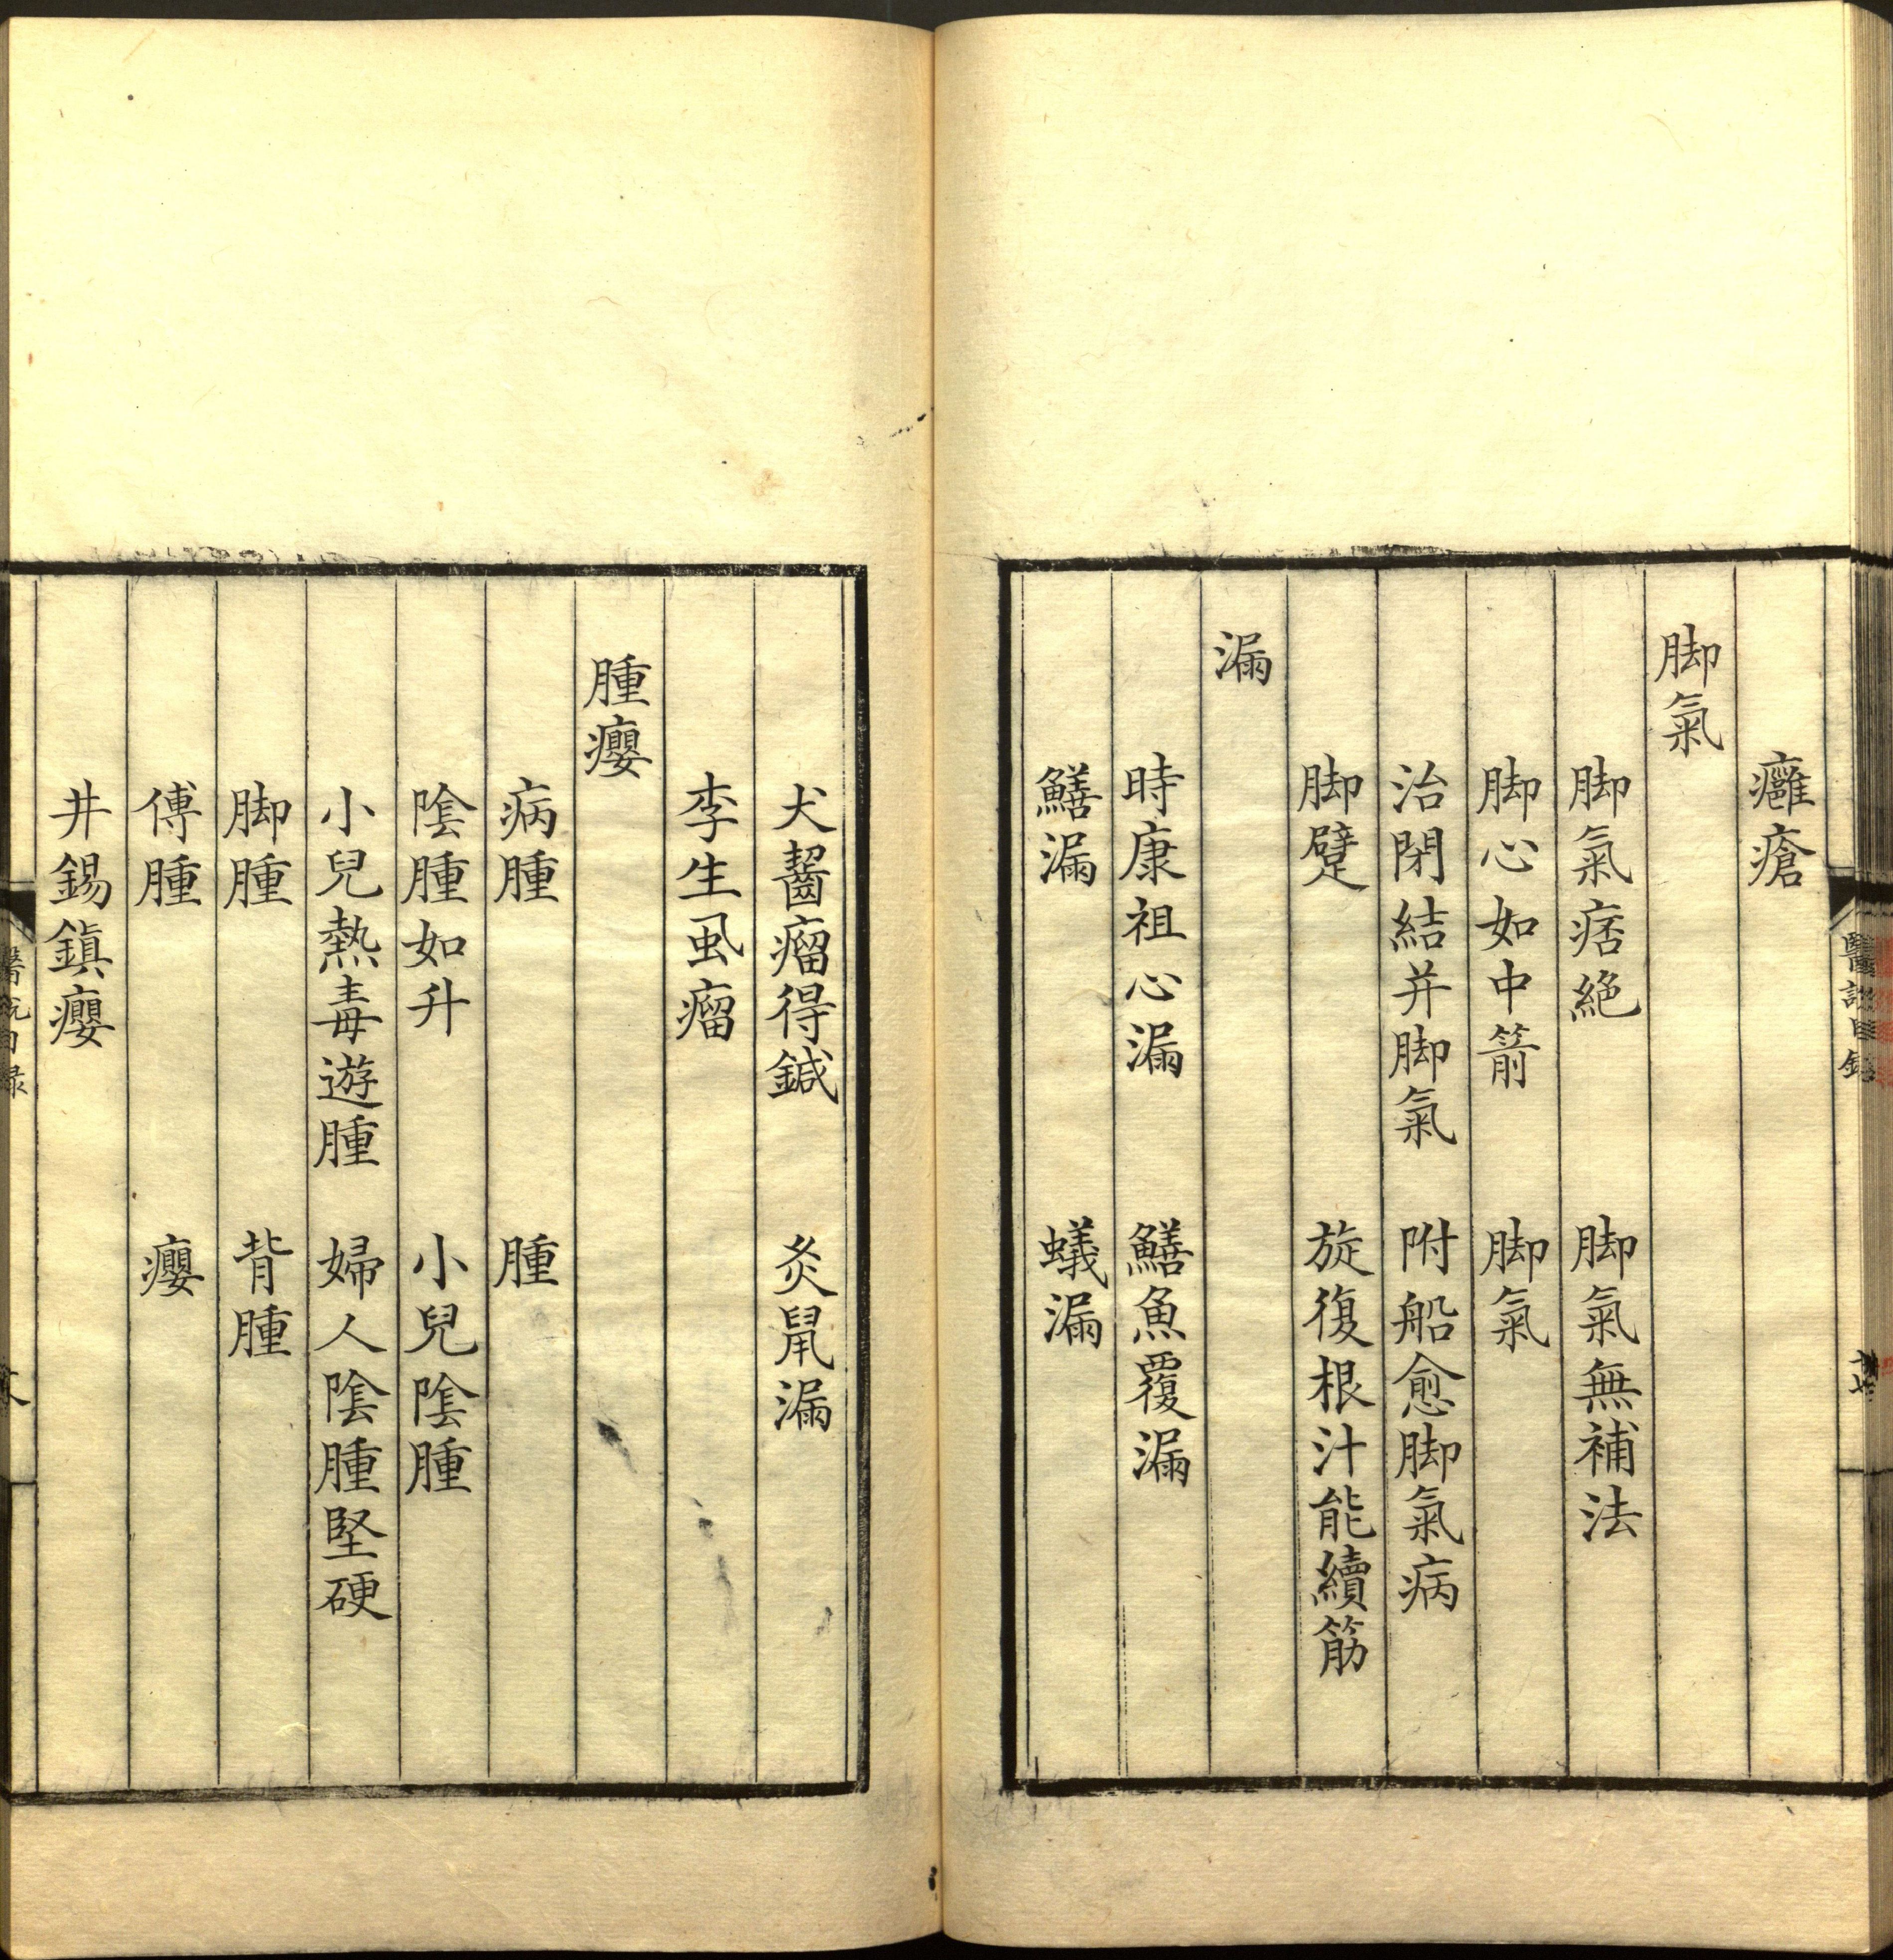 癰瘡
脚氣
脚氣痞絶　脚氣無補法
脚心如中箭　脚氣
治閉結并脚氣　附船愈脚氣病
脚躄　旋復根汁能續筋
漏
時康祖心漏　鱔魚覆漏
鱔漏　蟻漏
醫説目録
犬齧瘤得鍼　灸鼠漏
李生虱瘤
腫癭
病腫　腫
陰腫如升　小兒陰腫
小兒熱毒遊腫　婦人陰腫堅硬
脚腫　背腫
傅腫　癭
井錫鎮癭
醫説目録